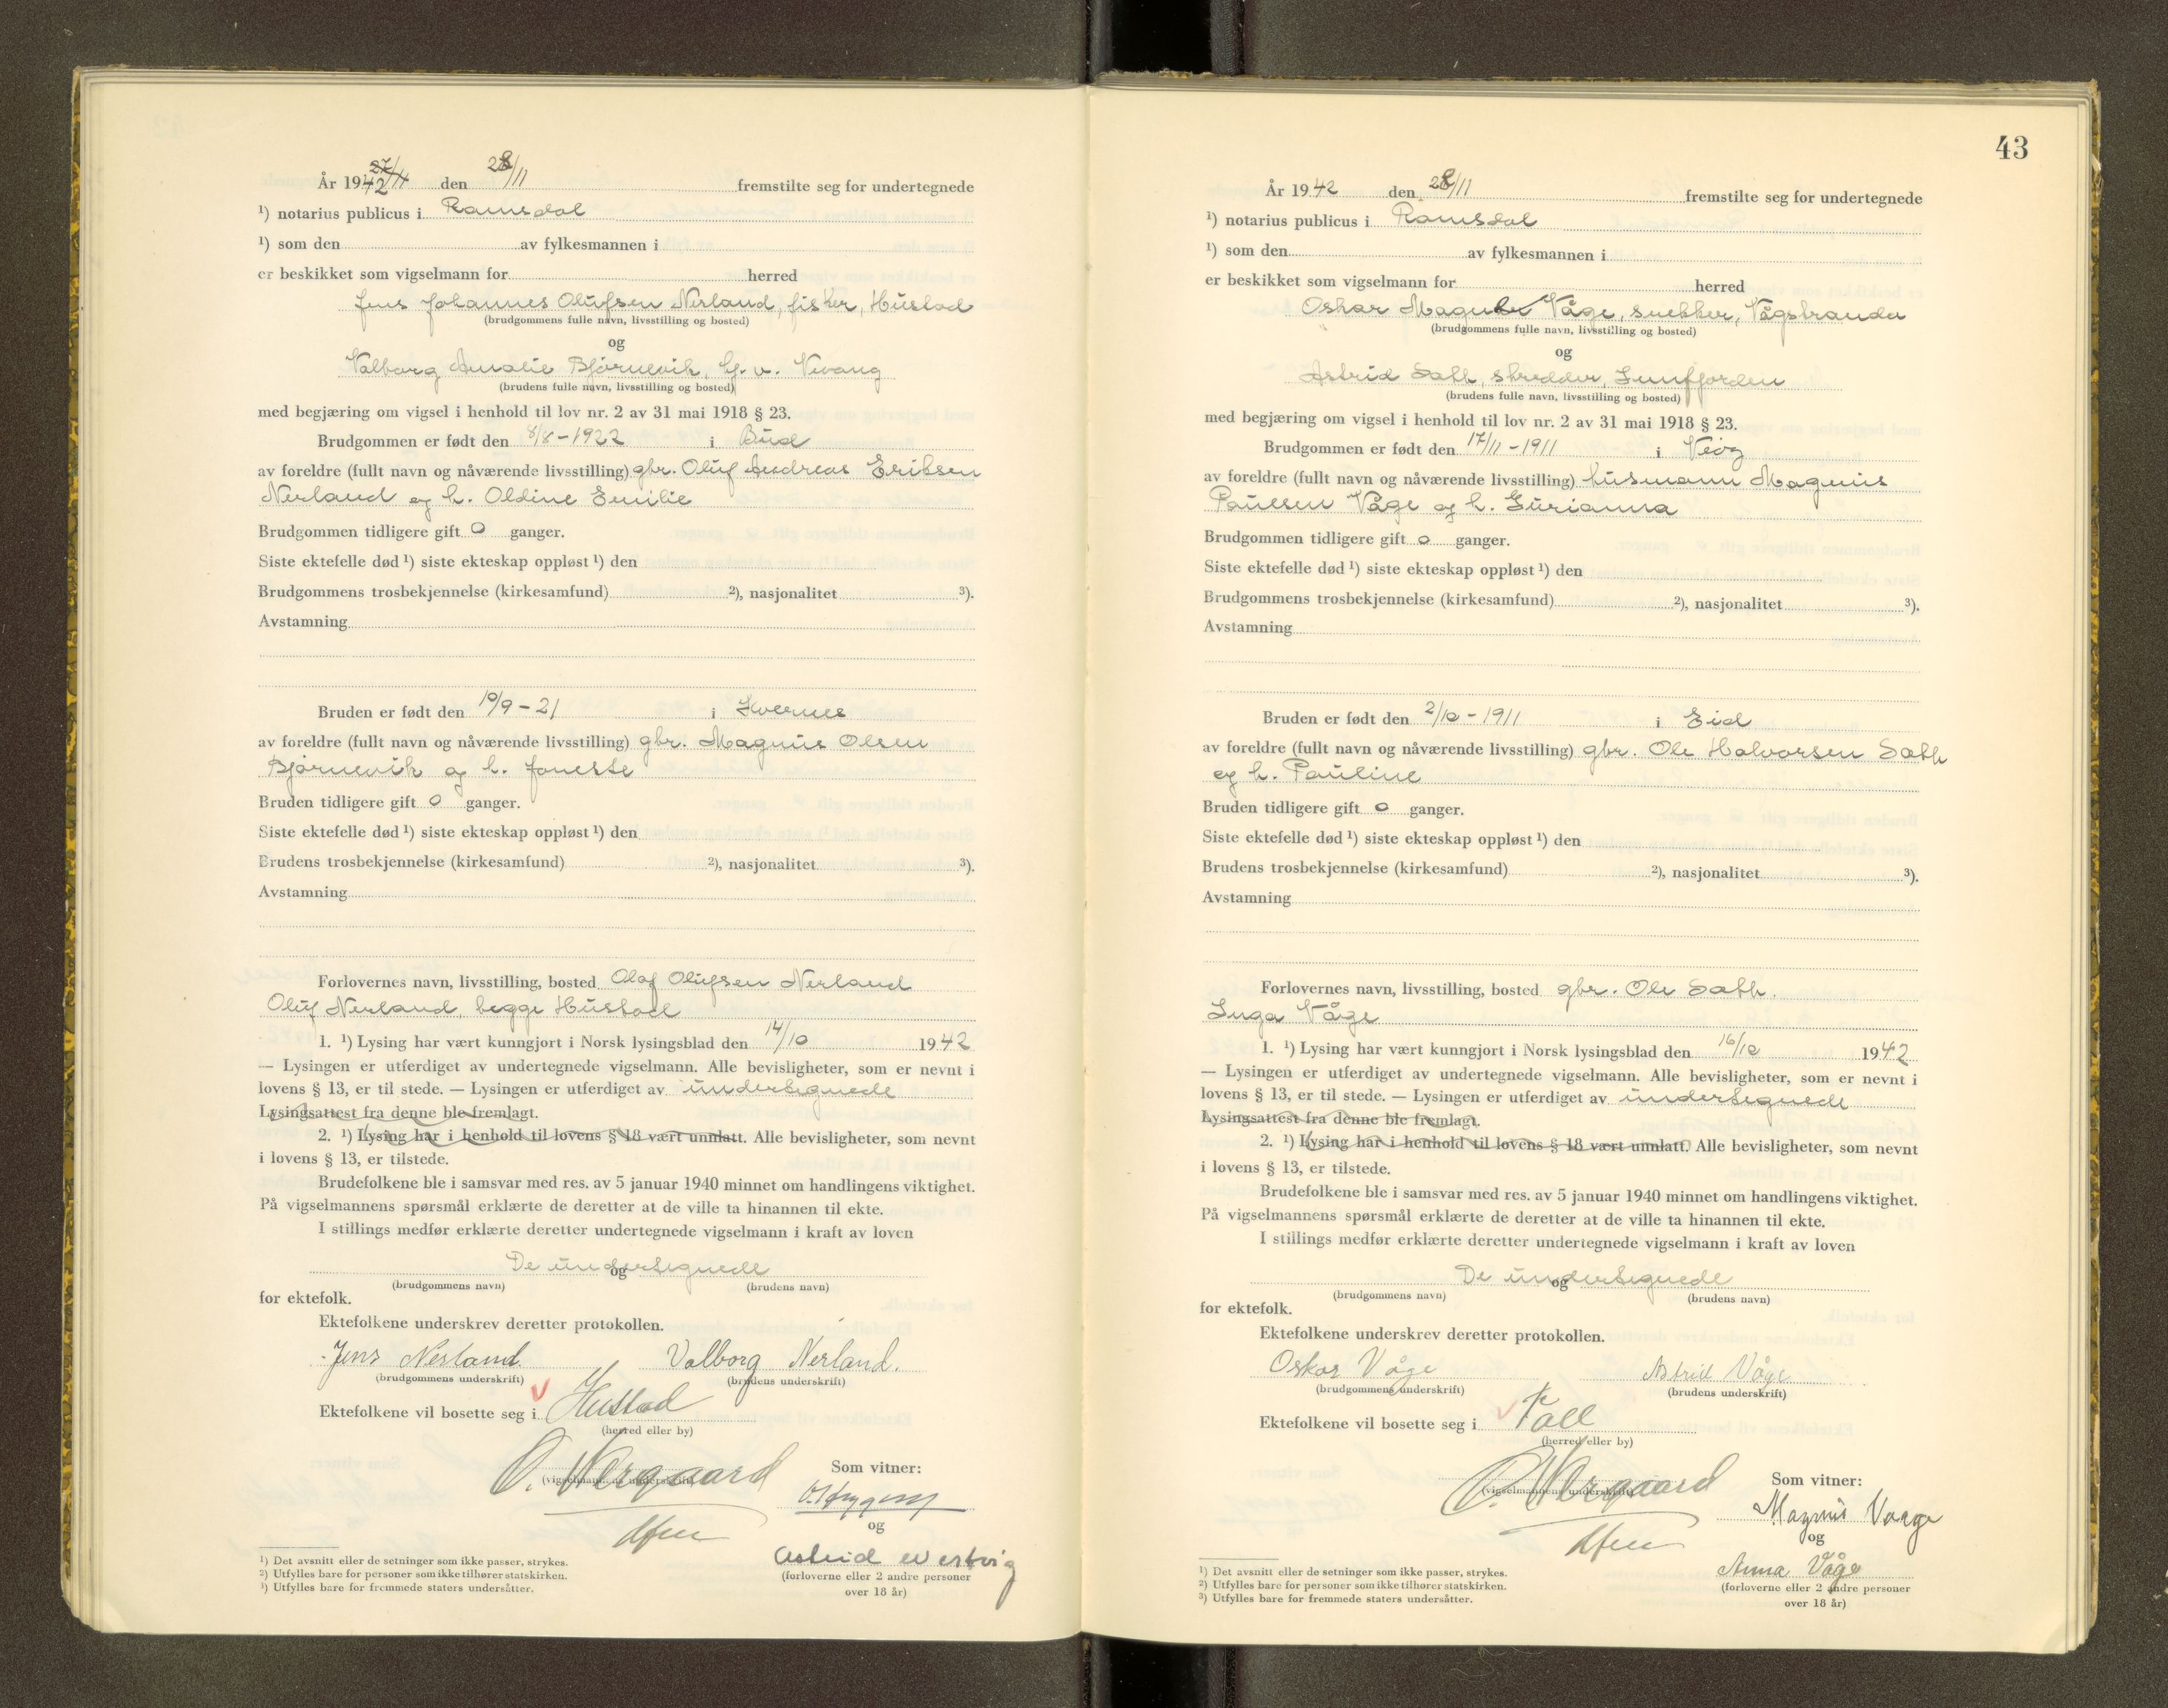 År 1942 27/11 den 28/11 fremstilte seg for undertegnede
¹) notarius publicus i Romsdal
¹) som den av fylkesmannen i
er beskikket som vigselmann for herred
Jens Johannes Olufsen Nerland, fisker, Hustad
(brudgommens fulle navn, livsstilling og bosted)
og
Valborg Amalie Bjørnevik, hj. v. Vevang
(brudens fulle navn, livsstilling og bosted)
med begjæring om vigsel i henhold til lov nr. 2 av 31 mai 1918 § 23.
Brudgommen er født den 8/8 - 1922 i Bud
av foreldre (fullt navn og nåværende livsstilling) gbr. Oluf Andreas Eriksen
Nerland og h. Oldine Emilie
Brudgommen tidligere gift 0 ganger.
Siste ektefelle død ¹) siste ekteskap oppløst ¹) den
Brudgommens trosbekjennelse (kirkesamfund) ²), nasjonalitet ³).
Avstamning
Bruden er født den 10/9 - 21 i Kvernes
av foreldre (fullt navn og nåværende livsstilling) gbr. Magnus Olsen
Bjørnevik og h. Jonette
Bruden tidligere gift 0 ganger.
Siste ektefelle død ¹) siste ekteskap oppløst ¹) den
Brudens trosbekjennelse (kirkesamfund) ²), nasjonalitet ³).
Avstamning
Forlovernes navn, livsstilling, bosted Olaf Olufsen Nerland
Oluf Nerland, begge Hustad
1. ¹) Lysing har vært kunngjort i Norsk lysingsblad den 14/10 1942
— Lysingen er utferdiget av undertegnede vigselmann. Alle bevisligheter, som er nevnt i
lovens § 13, er til stede. — Lysingen er utferdiget av undertegnede
Lysingsattest fra denne ble fremlagt.
2. ¹) Lysing har i henhold til lovens § 18 vært unnlatt. Alle bevisligheter, som nevnt
i lovens § 13, er tilstede.
Brudefolkene ble i samsvar med res. av 5 januar 1940 minnet om handlingens viktighet.
På vigselmannens spørsmål erklærte de deretter at de ville ta hinannen til ekte.
I stillings medfør erklærte deretter undertegnede vigselmann i kraft av loven
De undertegnede
og
(brudgommens navn) (brudens navn)
for ektefolk.
Ektefolkene underskrev deretter protokollen.
Jens Nerland Valborg Nerland.
(brudgommens underskrift) (brudens underskrift)
Ektefolkene vil bosette seg i Hustad
(herred eller by)
O. Nergaard
(vigselmannens underskrift)
Som vitner:
og
Astrid Westvig
(forloverne eller 2 andre personer
over 18 år)
¹) Det avsnitt eller de setninger som ikke passer, strykes.
²) Utfylles bare for personer som ikke tilhører statskirken.
³) Utfylles bare for fremmede staters undersåtter.
43
År 1942 den 28/11 fremstilte seg for undertegnede
¹) notarius publicus i Romsdal
¹) som den av fylkesmannen i
er beskikket som vigselmann for herred
Oskar Våge, snekker, Vågstranda
(brudgommens fulle navn, livsstilling og bosted)
og
Astrid Sæth, skredder, Innfjorden
(brudens fulle navn, livsstilling og bosted)
med begjæring om vigsel i henhold til lov nr. 2 av 31 mai 1918 § 23.
Brudgommen er født den 17/11 - 1911 i Veøy
av foreldre (fullt navn og nåværende livsstilling) husmann Magnus
Paulsen Våge og h. Gurianna
Brudgommen tidligere gift 0 ganger.
Siste ektefelle død ¹) siste ekteskap oppløst ¹) den
Brudgommens trosbekjennelse (kirkesamfund) ²), nasjonalitet ³).
Avstamning
Bruden er født den 2/10 - 1911 i Eid
av foreldre (fullt navn og nåværende livsstilling) gbr. Ole Halvorsen Sæth
og h. Pauline
Bruden tidligere gift 0 ganger.
Siste ektefelle død ¹) siste ekteskap oppløst ¹) den
Brudens trosbekjennelse (kirkesamfund) ²), nasjonalitet ³).
Avstamning
Forlovernes navn, livsstilling, bosted gbr. Ole Sæth.
Inga Våge
1. ¹) Lysing har vært kunngjort i Norsk lysingsblad den 16/10 1942
— Lysingen er utferdiget av undertegnede vigselmann. Alle bevisligheter, som er nevnt i
lovens § 13, er til stede. — Lysingen er utferdiget av undertegnede
Lysingsattest fra denne ble fremlagt.
2. ¹) Lysing har i henhold til lovens § 18 vært unnlatt. Alle bevisligheter, som nevnt
i lovens § 13, er tilstede.
Brudefolkene ble i samsvar med res. av 5 januar 1940 minnet om handlingens viktighet.
På vigselmannens spørsmål erklærte de deretter at de ville ta hinannen til ekte.
I stillings medfør erklærte deretter undertegnede vigselmann i kraft av loven
De undertegnede
og
(brudgommens navn) (brudens navn)
for ektefolk.
Ektefolkene underskrev deretter protokollen.
Oskar Våge Astrid Våge
(brudgommens underskrift) (brudens underskrift)
Ektefolkene vil bosette seg i Voll
(herred eller by)
O. Nergaard
(vigselmannens underskrift)
Som vitner:
Magnus Vaage
og
Anna Våge
(forloverne eller 2 andre personer
over 18 år)
¹) Det avsnitt eller de setninger som ikke passer, strykes.
²) Utfylles bare for personer som ikke tilhører statskirken.
³) Utfylles bare for fremmede staters undersåtter.